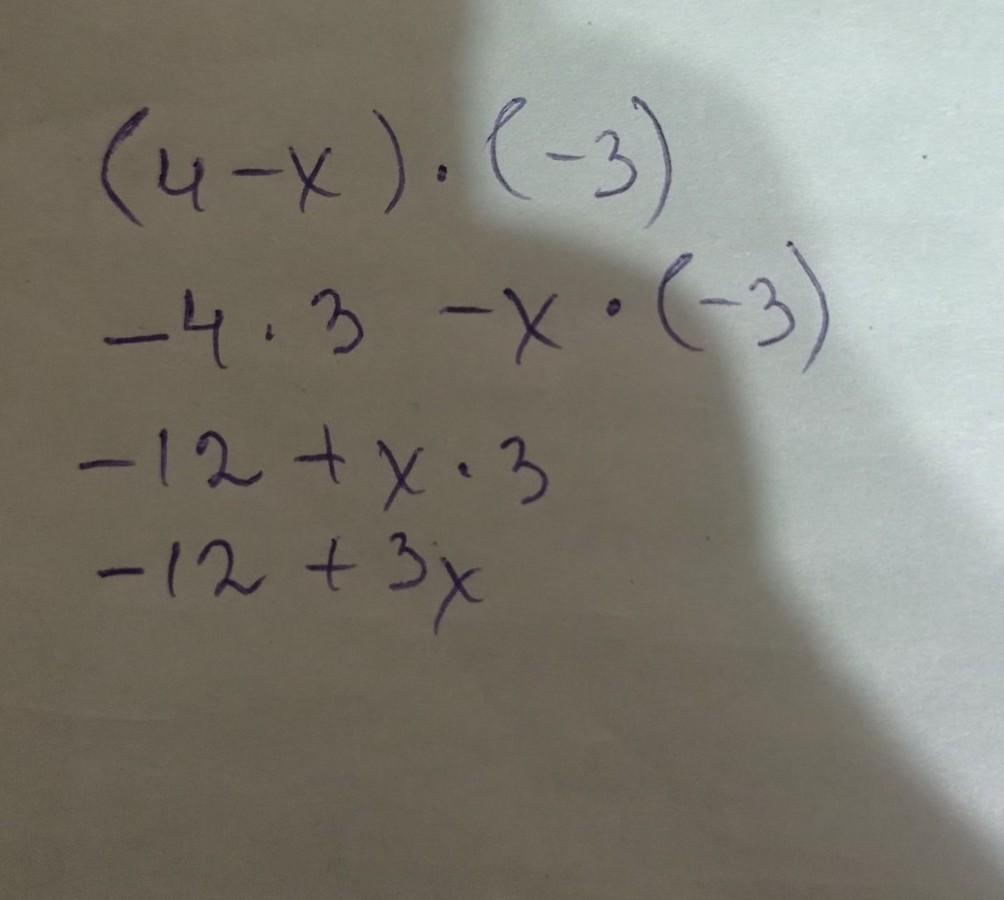 (4-x)·(-3)
-4·3 -x·(-3)
-12 + x·3
-12 + 3x